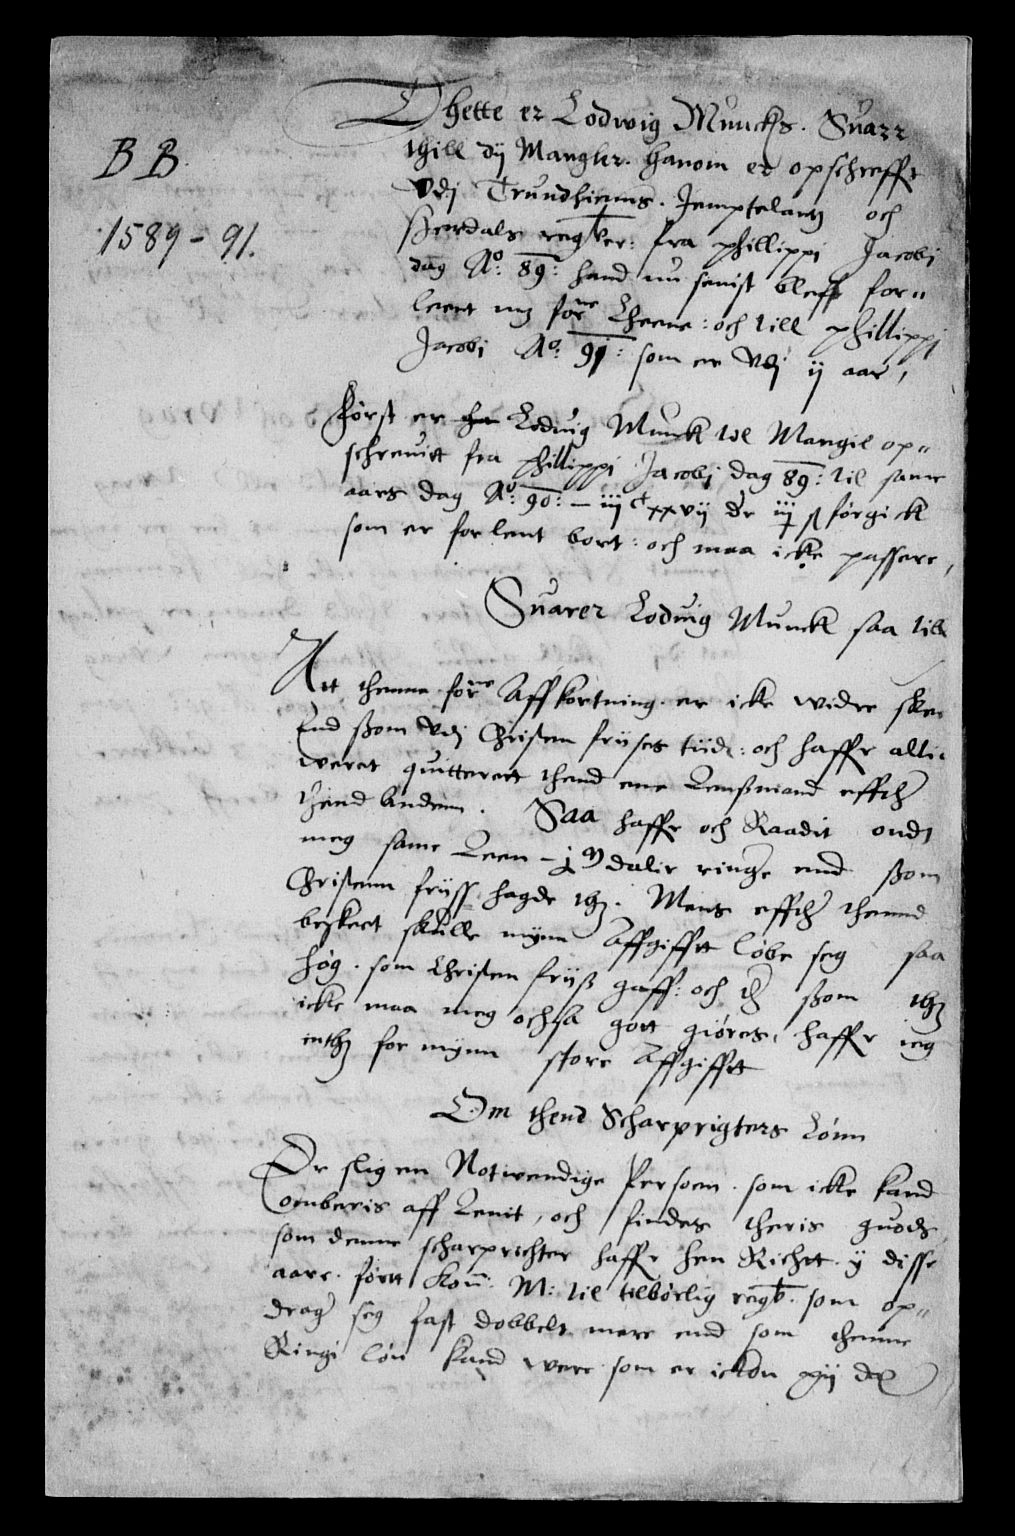 BB
1589 - 91.
Dhette er Lodwig Muncks. Suarr
thill dij Mangler. hanom er opschreffit
vdj Trundhiems. Jemptelandz och
Herdals regnschaber: fra phillippi Jacobi
dag Ao: 89: hand nu senist bleff for„
lent mz forne Lheene: och till phillippi
Jacobi Ao. 91: som er vdj ij aar,
Først er Lodvig Munck til Mangil op„
schreuitt fra phillippi Jacobj dag 89: til same
aars dag Ao: 90: – iij c xxvij dr iij ß førgick
som er forlent bort: och maa icke passere,
Suarer Lodvig Munck saa till
Att thenne forne Affkortning er icke widre skeu
End ssom vdj Christen friises tiidt: och haffr alti
weret quitterett thend ene Lenssmand effther
thend Anden. Saa haffr och Raadit ondt
meg same Leen – j m dalir ringe end ssom
Christenn friiss hagde thz. Mens effther thennd
beskeet skulle mynn Affgifft løbe seg saa
høg. som Christen friiss gaff: och ther ssom thz
icke maa meg ochsa gott giøres, haffr ieg
inthz for mynn store Affgifftt
Om thend Scharprigters Lønn
Er slig en Notwendige Persoen. som icke kand
omberis aff Lenit, och findes theris guods
som denne scharprichter haffr hen Richtt y disse
aare. førtt Kon: M: til tilbørlig regnschab. som op„
drager seg fast dobbelt mere end som thenne
Ringi løn kand were som er ickon xij dlr